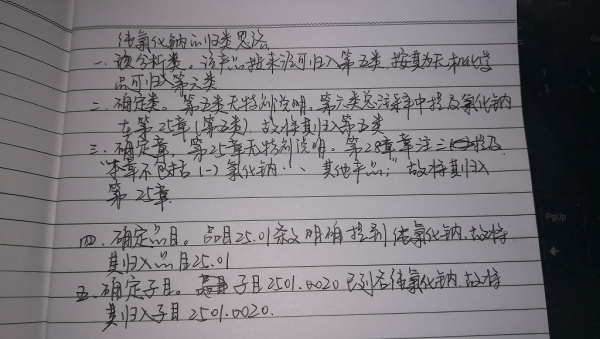 纯氯化钠的归类思路
一、读分析类。该产品按来源可归入第五类,按其为无机化学
品可归入第六类
二、确定类。第五类无特别说明,第六类总注释中提及氯化钠
在第25章(第五类),故将其归入第五类
三、确定章。第25章无特别说明。第28章章注三提及
“本章不包括(一)氯化钠、… 其他产品;”故将其归入
第25章
四、确定品目。品目25.01条文明确提到纯氯化钠,故将
其归入品目25.01
五、确定子目。子目2501.0020已列名纯氯化钠,故将
其归入子目2501.0020.
PgUp